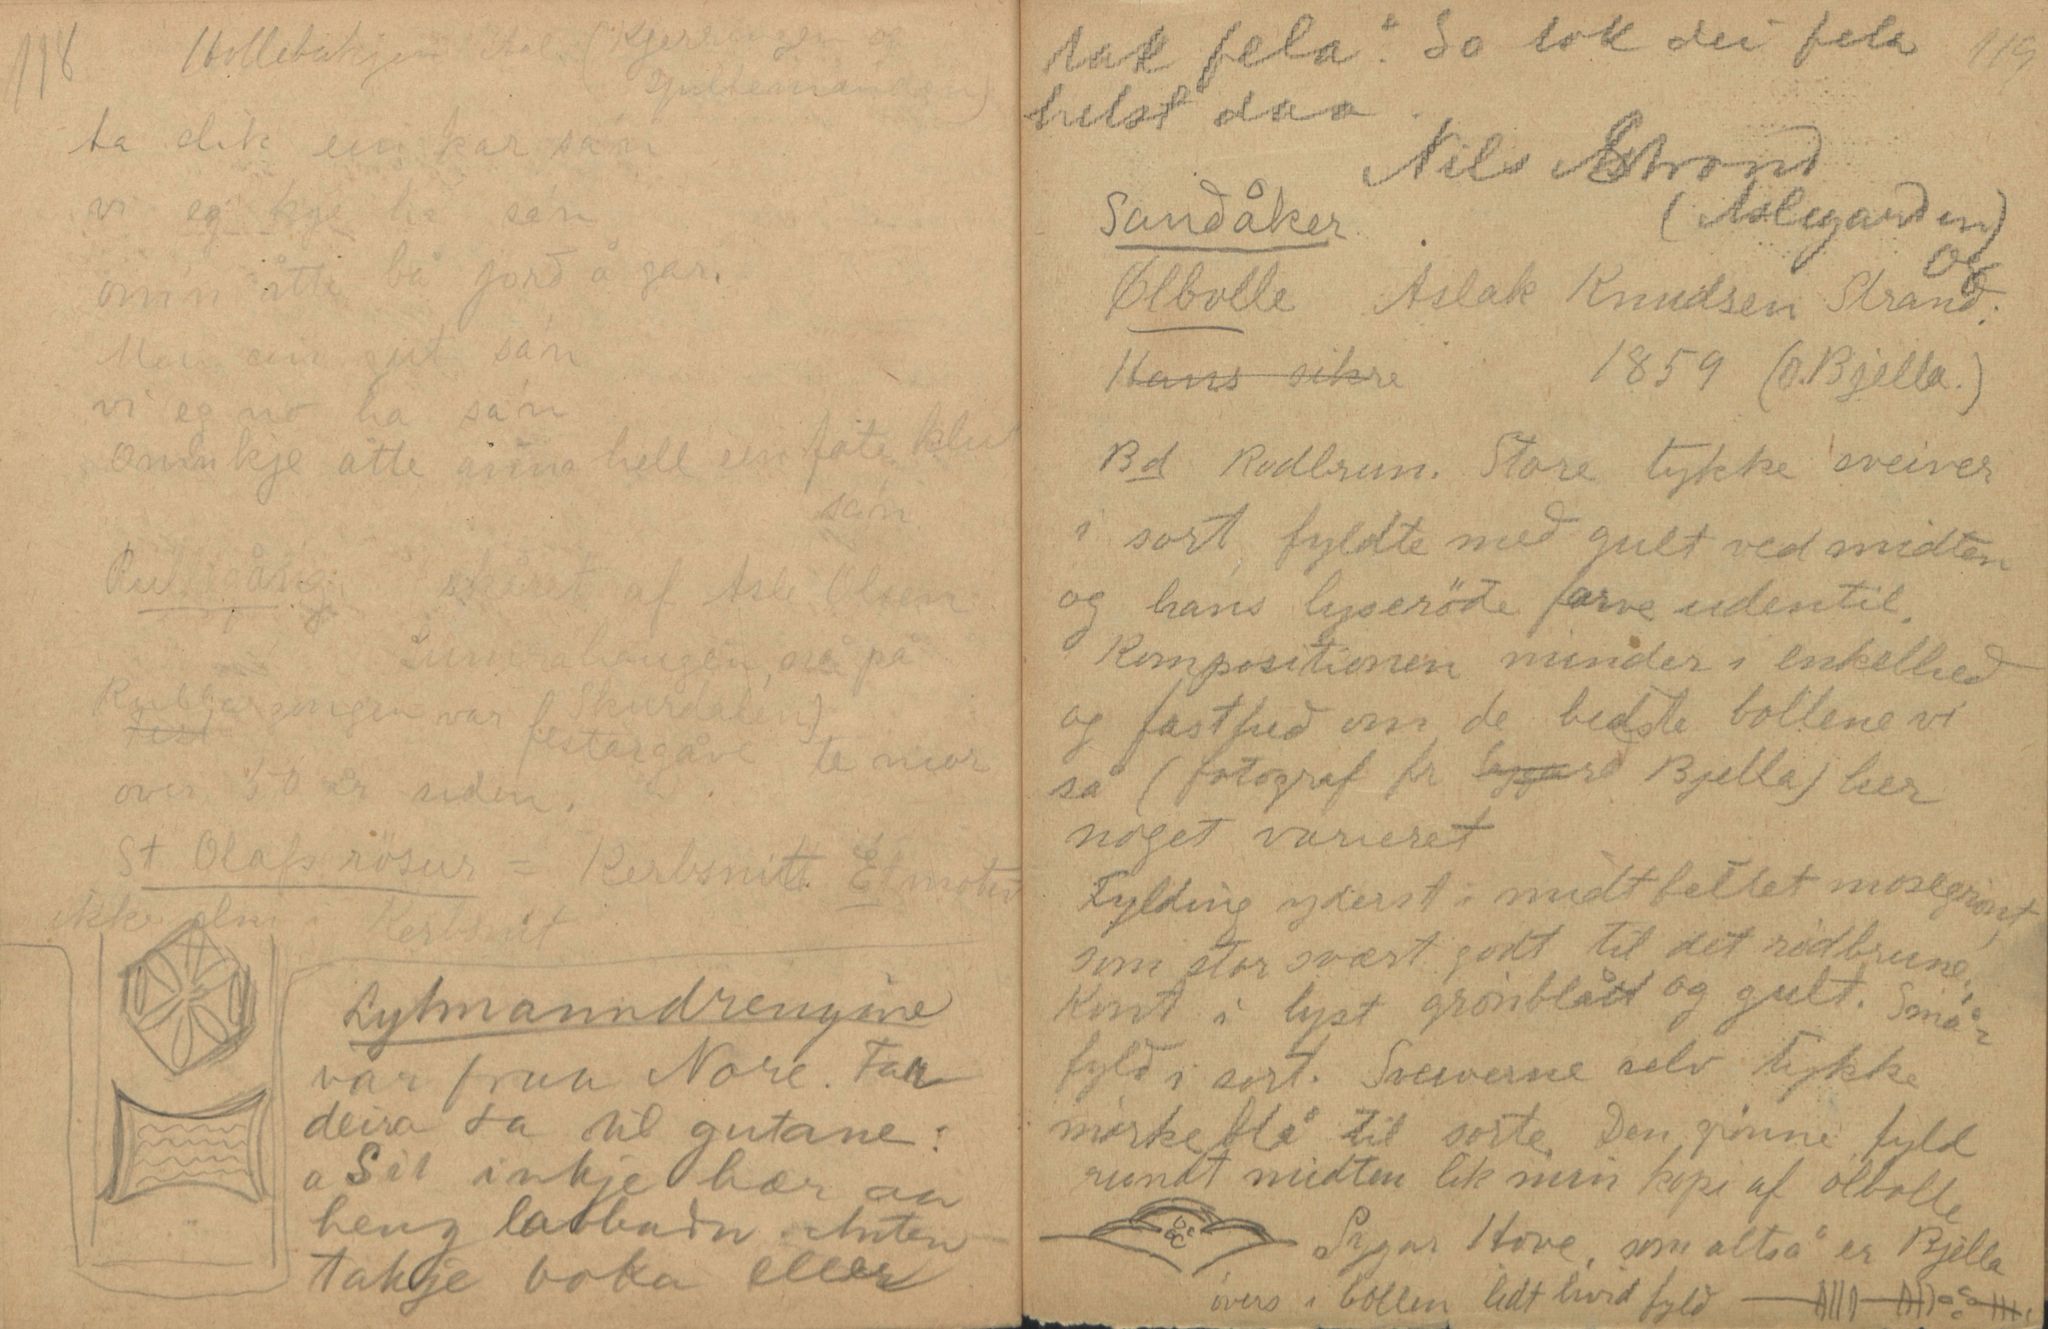 118
ta slik ein kar så'n
vi eg kje ha så'n
om'n åtte bå jord å gar.
Men ein gut så'n
vi eg no ha så'n
om'n kje åtte anna hell ein fote klut
så'n
skåret af Asle Olsen
på
Skurdalen)
var festargåve te mor
over 50 år siden.
St Olafs rösur = Kerbsnitt. Et motiv
ikke i Kerbsnit
Lytmanndrengine
var fraa Nore. Far
deira sa til gutane:
"Sit inkje hær aa
heng labbadn. Anten
takje boka eller
119
tak fela". So tok dei fela
helst daa.
Nils Strand
(Aslegarden)
og
Sandåker
Ølbolle Aslak Knudsen Strand.
Hans sikre 1859 (O. Bjella.)
Bd Rødbrun. Store tykke sveiver
i sort, fyldte med gult ved midten
og hans lyseröde farve udentil.
Kompositionen minder i enkelhed
og fasthed om de bedste bollene vi
så (fotograf fr Bjella) her
noget varieret
Fylding yderst i midtfeltet mosegrönt,
som står svært godt til det rödbrune.
Kant i lyst grönblått og gult. Små
fyld i sort. Sveiverne selv tykke
mörke blå til sorte. Den grönne fyld
rundt midten lik min kopi af ölbolle
Sygar Hove, som altså er Bjella
övers i bollen lidt hvid fyld